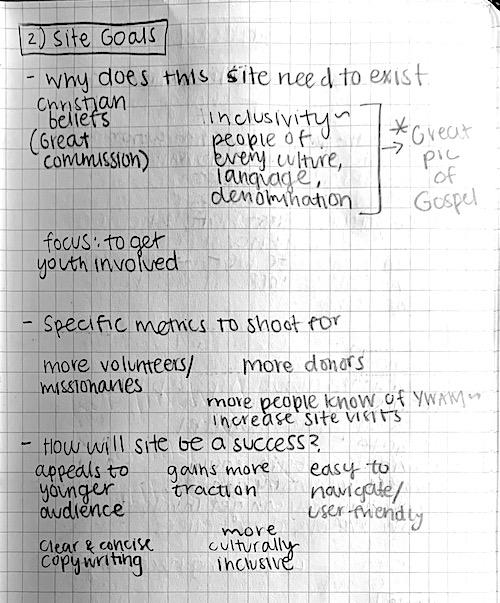 2) Site Goals
- why does this site need to exist
Christian
beliefs
(Great
commission)
inclusivity~
people of
every culture,
language,
denomination
* Great
→ pic
of
Gospel
focus: to get
youth involved
- Specific metrics to shoot for
more volunteers/
missionaries
more donors
more people know of YWAM~
increase site visits
- How will site be a success?
appeals to
younger
audience
gains more
traction
easy to
navigate/
user friendly
clear & concise
copywriting
more
culturally
inclusive